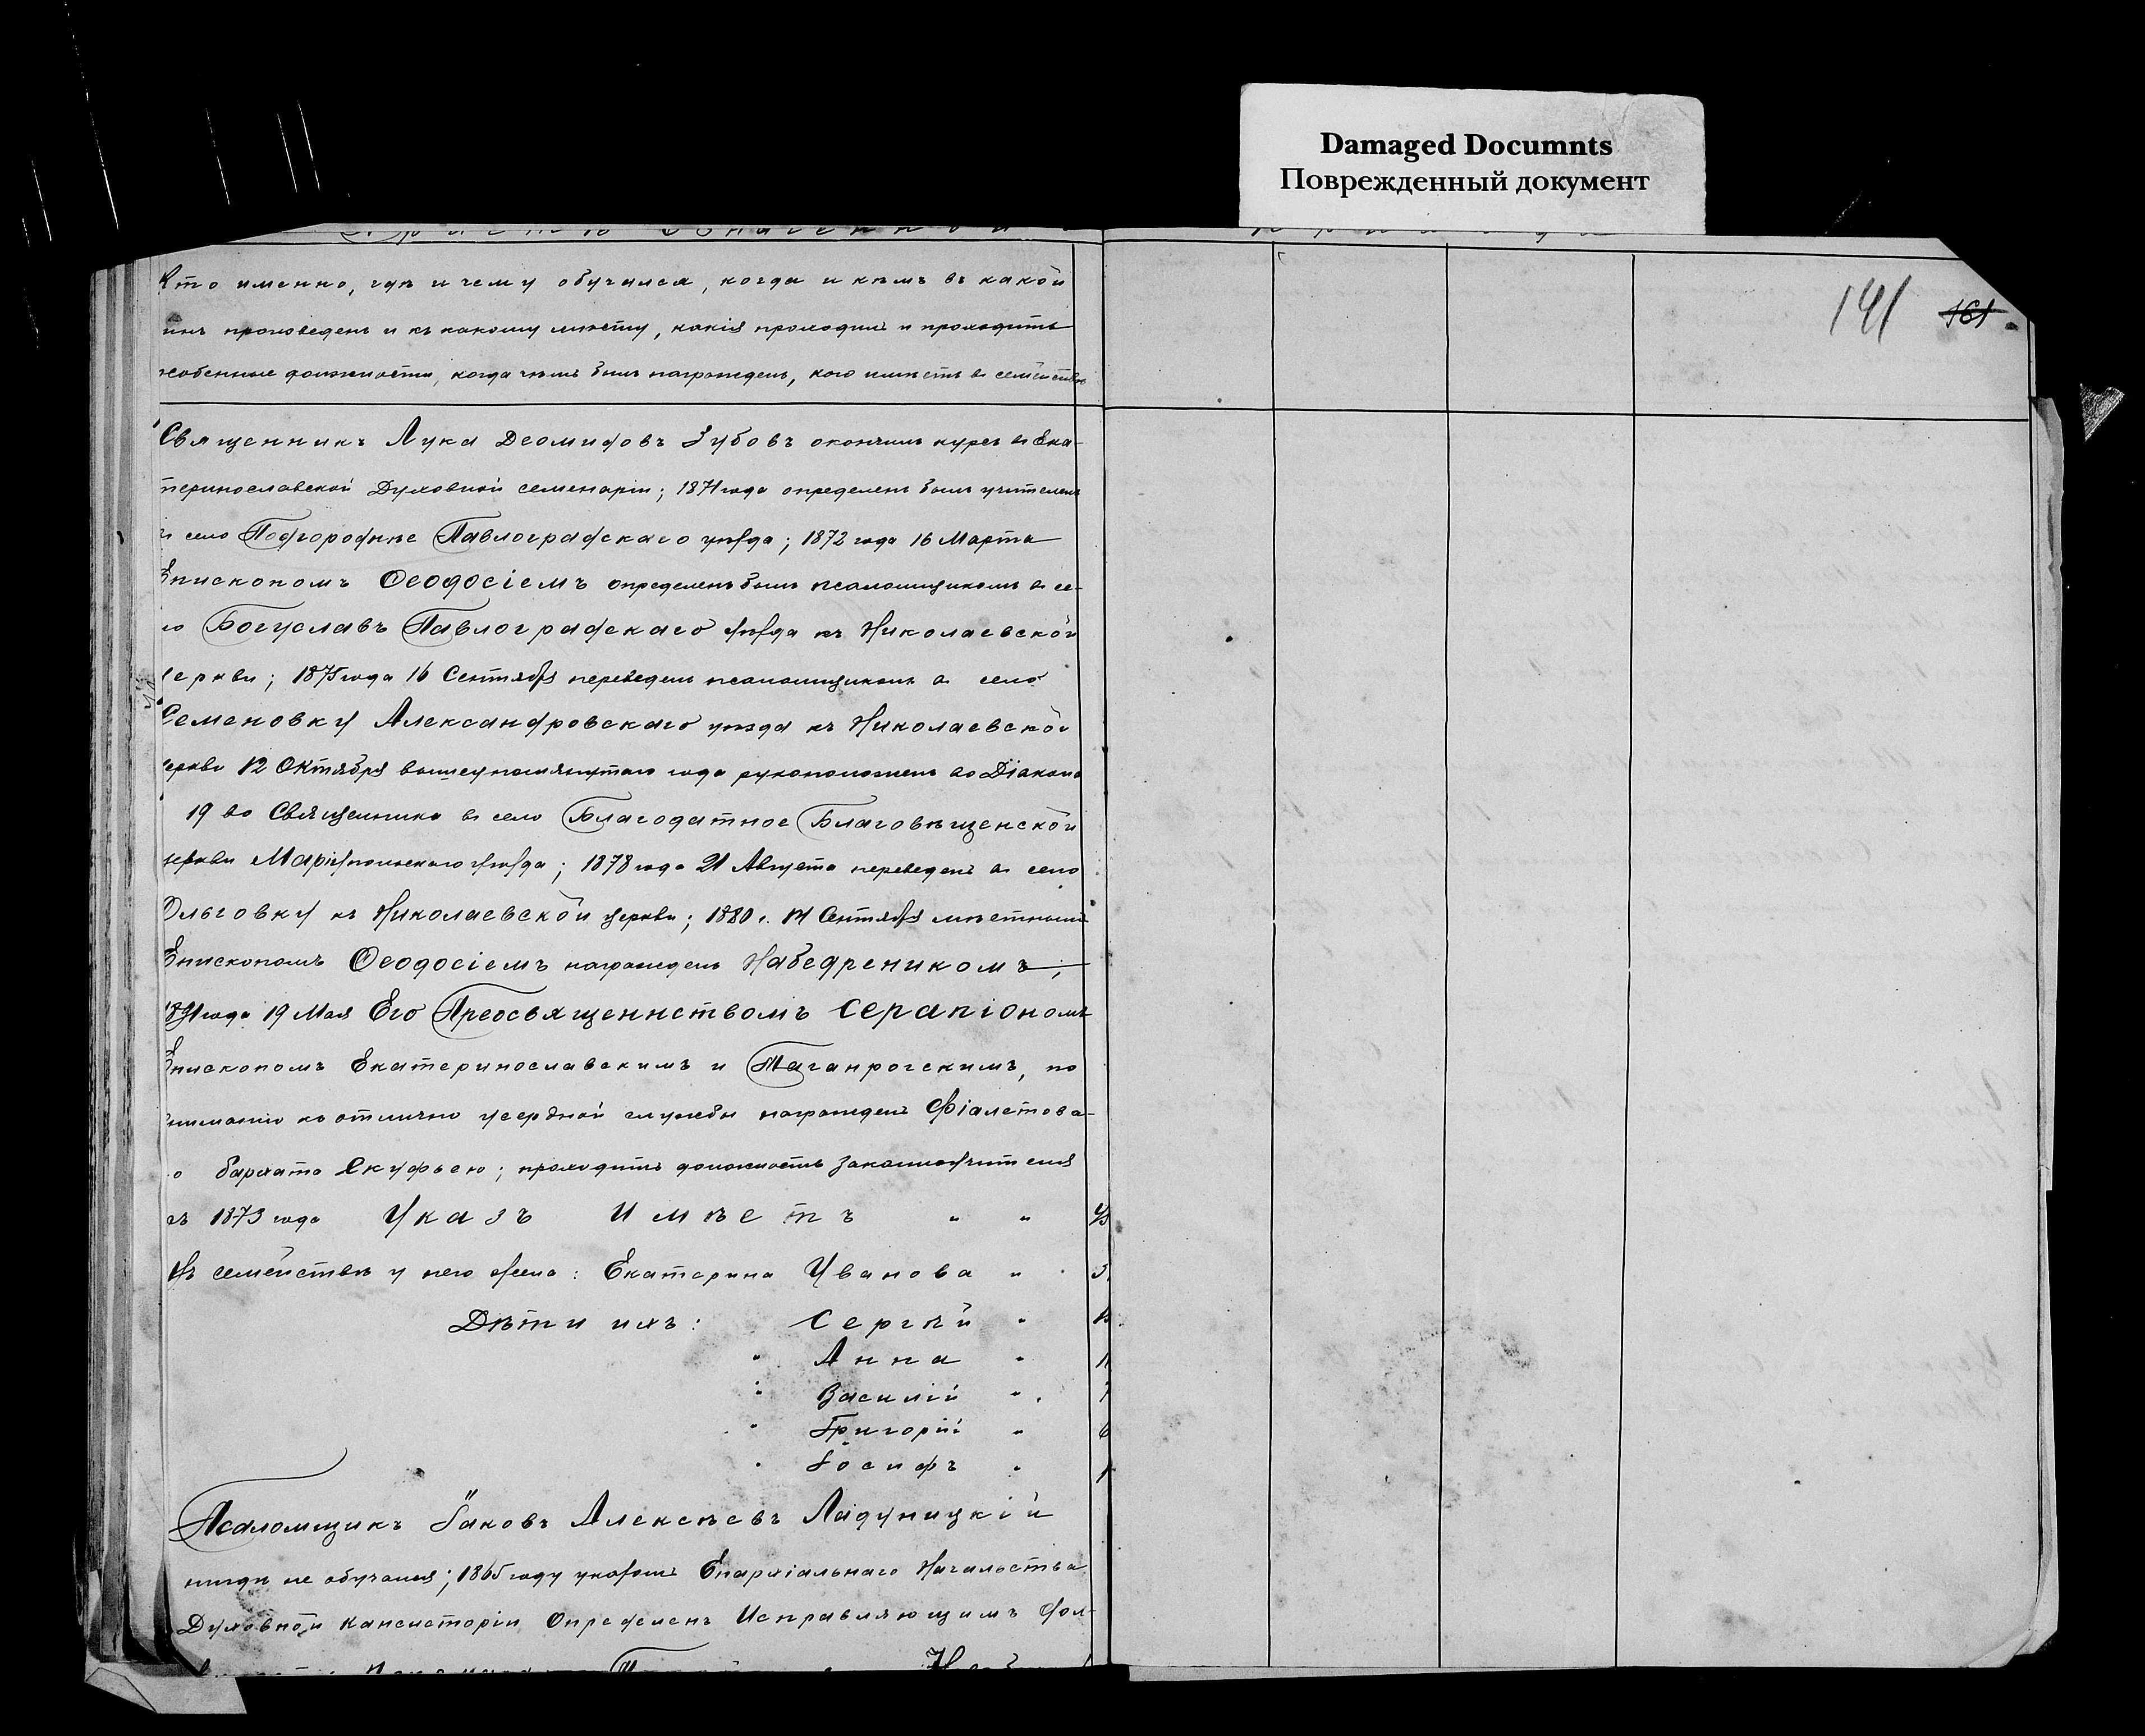 Damaged Documnts
Поврежденный документ
141 161
Кто именно, гдѣ и чему обучался, когда и кѣмъ въ какой
чинъ произведенъ и къ какому мѣсту, какія проходилъ и проходитъ
особенные должности, когда чѣмъ былъ награжденъ, кого имѣетъ въ семействѣ
Священникъ Лука Деомидовъ Зубовъ окончилъ курсъ въ Ека-
теринославской Духовной семенаріи; 1871 года определенъ былъ учителемъ
въ село Подгороднѣе Павлоградскаго уѣзда; 1872 года 16 Марта
Епископомъ Ѳеодосіемъ определенъ былъ псаломщикомъ въ се-
ло Богуславъ Павлоградскаго уѣзда къ Николаевской
церкви; 1875 года 16 Сентября переведенъ псаломщикомъ въ село
Семеновку Александровскаго уѣзда къ Николаевской
церкви 12 Октября вышеупомянутаго года рукоположенъ во Діакона
19 во Священника въ село Благодатное Благовѣщенской
церкви Маріупольскаго уѣзда; 1878 года 21 Августа переведенъ въ село
Ольговку къ Николаевской церкви; 1880 г. 14 Сентября мѣстнымъ
Епископомъ Ѳеодосіемъ награжденъ Набедреникомъ;
1891 года 19 Мая Его Преосвященнствомъ Серапіономъ
Епископомъ Екатеринославскимъ и Таганрогскимъ, по
вниманію ко отлично усердной службы награжденъ Фіалетова-
го бархата Скуфьею; проходитъ должность законоучителя
съ 1873 года Указъ Имѣетъ " "
Въ семействѣ у него жена: Екатерина Иванова "
Дѣти ихъ: Сергѣй "
" Анна " 11
" Василій " 7
" Григорій " 6
" Іосифъ " 1
Псаломщикъ Іаковъ Алексѣевъ Ладуницкій
нигдѣ не обучался; 1865 году указомъ Епархіальнаго Начальства
Духовной Кансисторіи Определенъ Исправляющимъ дол-